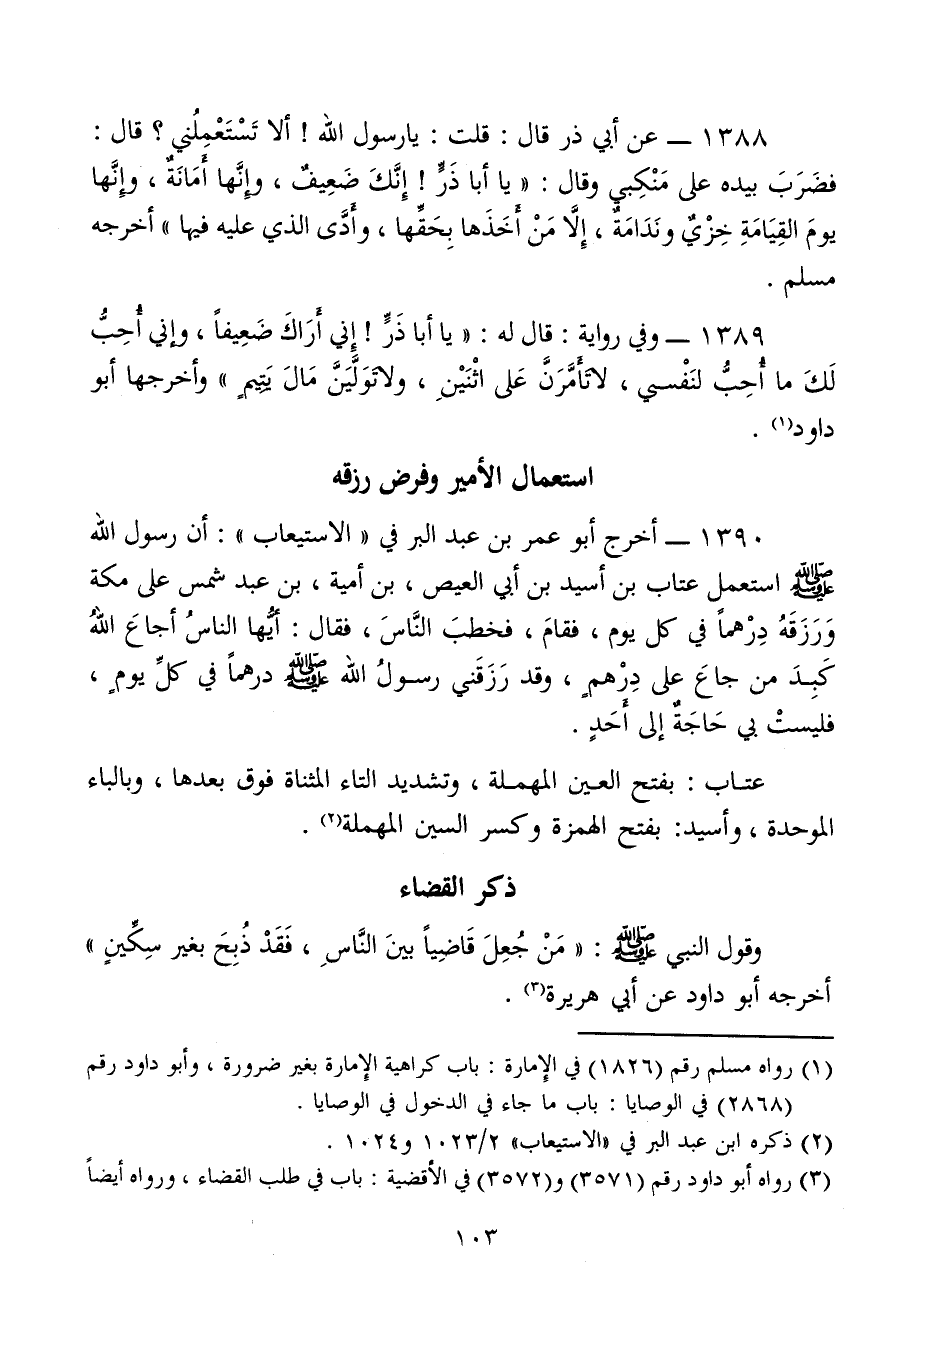 ١٣٨٨ ـ عن أبي ذر قال : قلت : يارسول الله ! ألا تَسْتَعْمِلُني ؟ قال :
فضَرَبَ بيده على مَنْكِبي وقال : « يا أبا ذَرٍّ ! إنَّكَ ضَعِيفٌ ، وإنَّها أَمَانَةٌ ، وإنَّها
يومَ القِيَامَةِ خِزْيٌ ونَدَامَةٌ ، إلَّا مَنْ أَخَذَها بِحَقِّها ، وأَدَّى الذي عليه فيها » أخرجه
مسلم .
١٣٨٩ ـ وفي رواية : قال له : « يا أبا ذَرٍّ ! إني أَرَاكَ ضَعِيفاً ، وإني أُحِبُّ
لَكَ ما أُحِبُّ لنَفْسي ، لاتَأَمَّرَنَّ عَلى اثْنَيْنِ ، ولاتَوَلَّيَنَّ مَالَ يَتِيمٍ » وأخرجها أبو
داود(١) .
استعمال الأمير وفرض رزقه
١٣٩٠ ـ أخرج أبو عمر بن عبد البر في « الاستيعاب » : أن رسول الله
ﷺ استعمل عتاب بن أسيد بن أبي العيص ، بن أمية ، بن عبد شمس على مكة
وَرَزَقَهُ دِرْهماً في كل يوم ، فقامَ ، فخطبَ النَّاسَ ، فقال : أيُّها الناسُ أجاعَ اللهُ
كَبِدَ من جاعَ على دِرْهمٍ ، وقد رَزَقَني رسولُ الله ﷺ درهماً في كلِّ يومٍ ،
فليستْ بي حَاجَةٌ إلى أَحَدٍ .
عتاب : بفتح العين المهملة ، وتشديد التاء المثناة فوق بعدها ، وبالباء
الموحدة ، وأسيد: بفتح الهمزة وكسر السين المهملة(٢) .
ذكر القضاء
وقول النبي ﷺ : « مَنْ جُعِلَ قَاضِياً بينَ النَّاسِ ، فَقَدْ ذُبِحَ بغير سِكِّينٍ »
أخرجه أبو داود عن أبي هريرة(٣) .
(١) رواه مسلم رقم (١٨٢٦) في الإمارة : باب كراهية الإمارة بغير ضرورة ، وأبو داود رقم
(٢٨٦٨) في الوصايا : باب ما جاء في الدخول في الوصايا .
(٢) ذكره ابن عبد البر في «الاستيعاب» ١٠٢٣/٢ و١٠٢٤ .
(٣) رواه أبو داود رقم (٣٥٧١) و(٣٥٧٢) في الأقضية : باب في طلب القضاء ، ورواه أيضاً
١٠٣